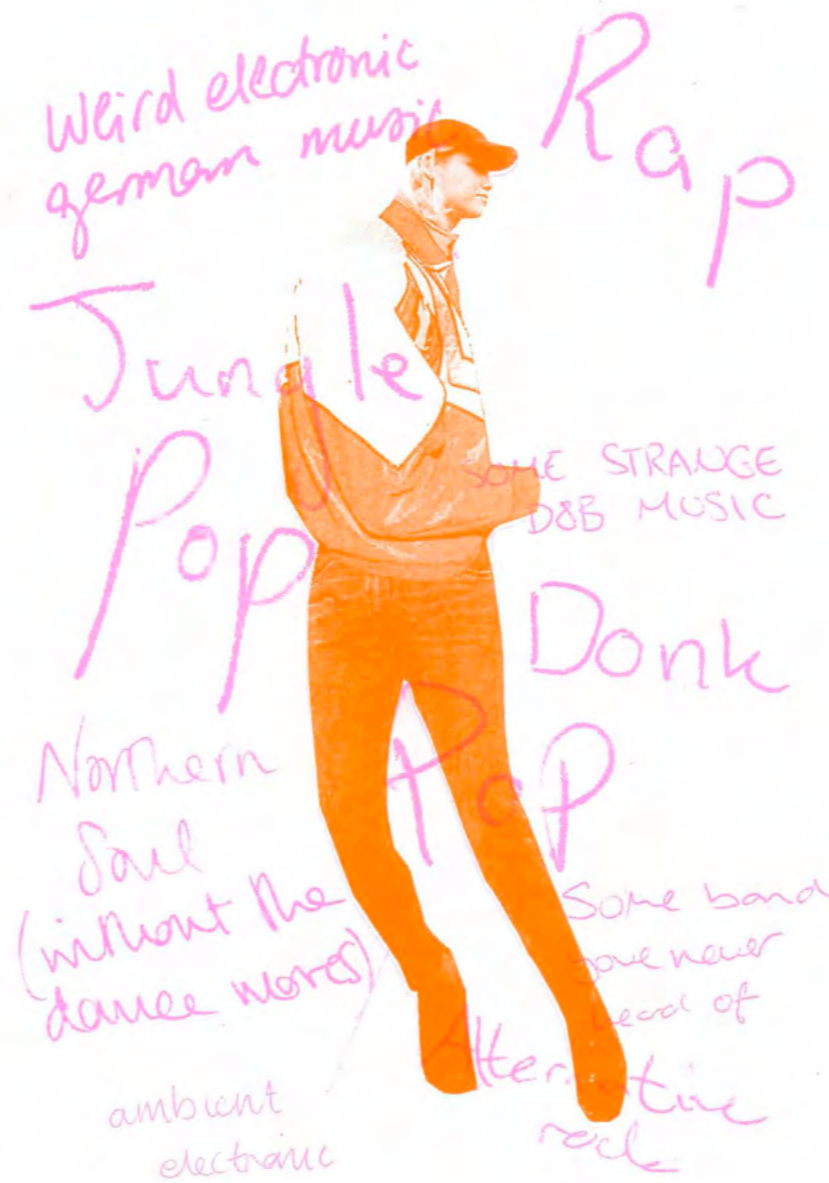 Weird electronic
german music
Rap
Jungle
Pop
SOME STRANGE
D&B MUSIC
Donk
Pop
Northern
Soul
(without the
dance moves)
Some band
youve never
head of
Alternative
rock
ambient
electronic